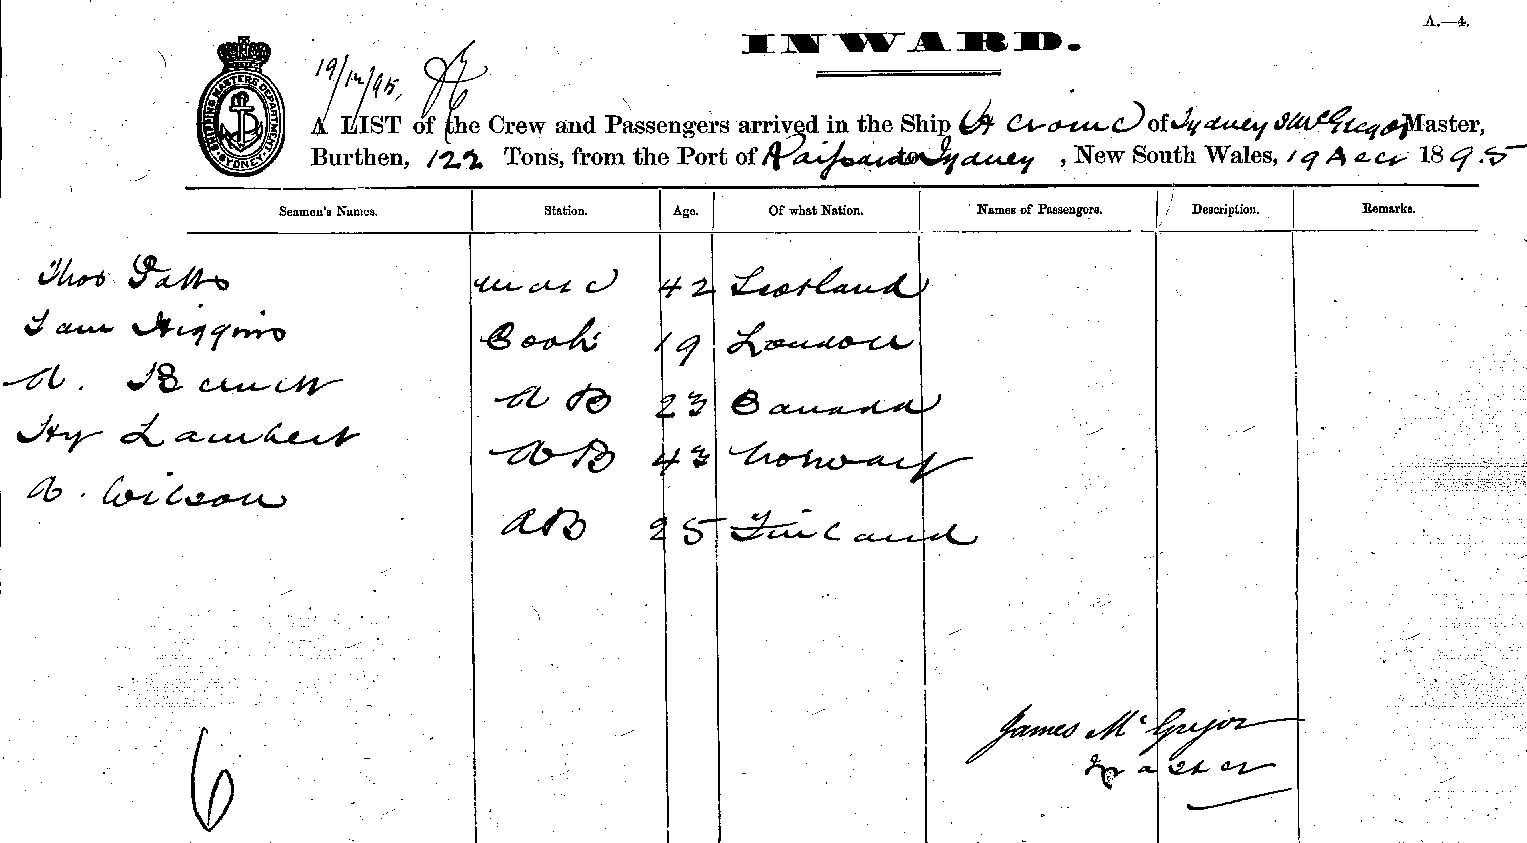 A.—4.
INWARD.
19/12/95.
SHIPPING MASTERS DEPARTMENT SYDNEY
A LIST of the Crew and Passengers arrived in the Ship of Sydney J McGregor Master,
Burthen, 122 Tons, from the Port of to Sydney, New South Wales, 19 Decr 1895
Seamen's Names. Station. Age. Of what Nation. Names of Passengers. Description. Remarks.
Thos Potts Mate 42 Scotland
Sam Higgins Cook 19 London
A. AB 23 Canada
Hy Lambert AB 43 Norway
A. Wilson AB 25 Finland
James McGregor
Master
6